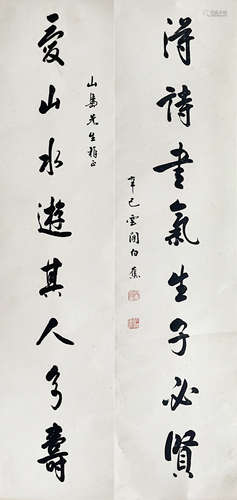 得詩書氣生子必賢
辛巳雲間白蕉
山島先生雅正
愛山水遊其人多壽